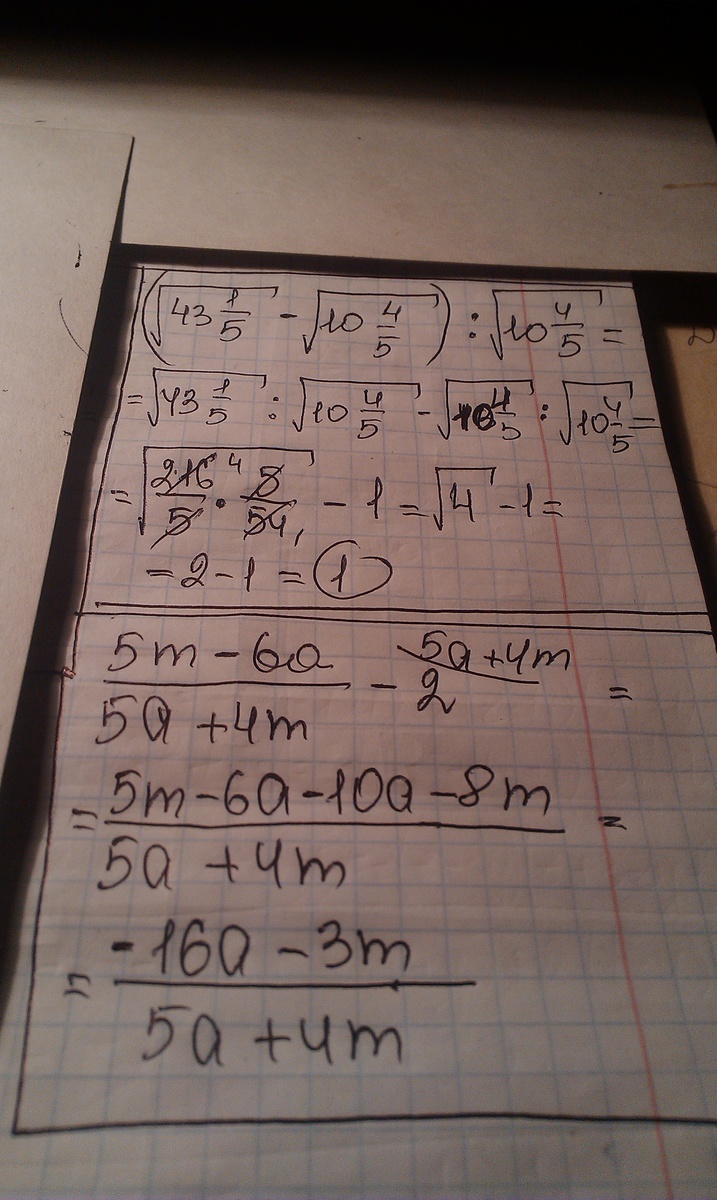 (√43 1/5 - √10 4/5) : √10 4/5 =
= √43 1/5 : √10 4/5 - √10 4/5 : √10 4/5 =
= √216/5 ⁴ · 5/54, - 1 = √4 - 1 =
= 2 - 1 = 1
(5m - 6a)/(5a + 4m) - 2 5a + 4m =
= (5m - 6a - 10a - 8m)/(5a + 4m) =
= (-16a - 3m)/(5a + 4m)